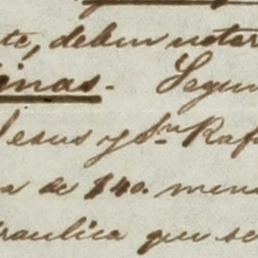 te, deben notar
inas. Segun
Jesus y Sn Raf
a de $40. mens
raulica que se